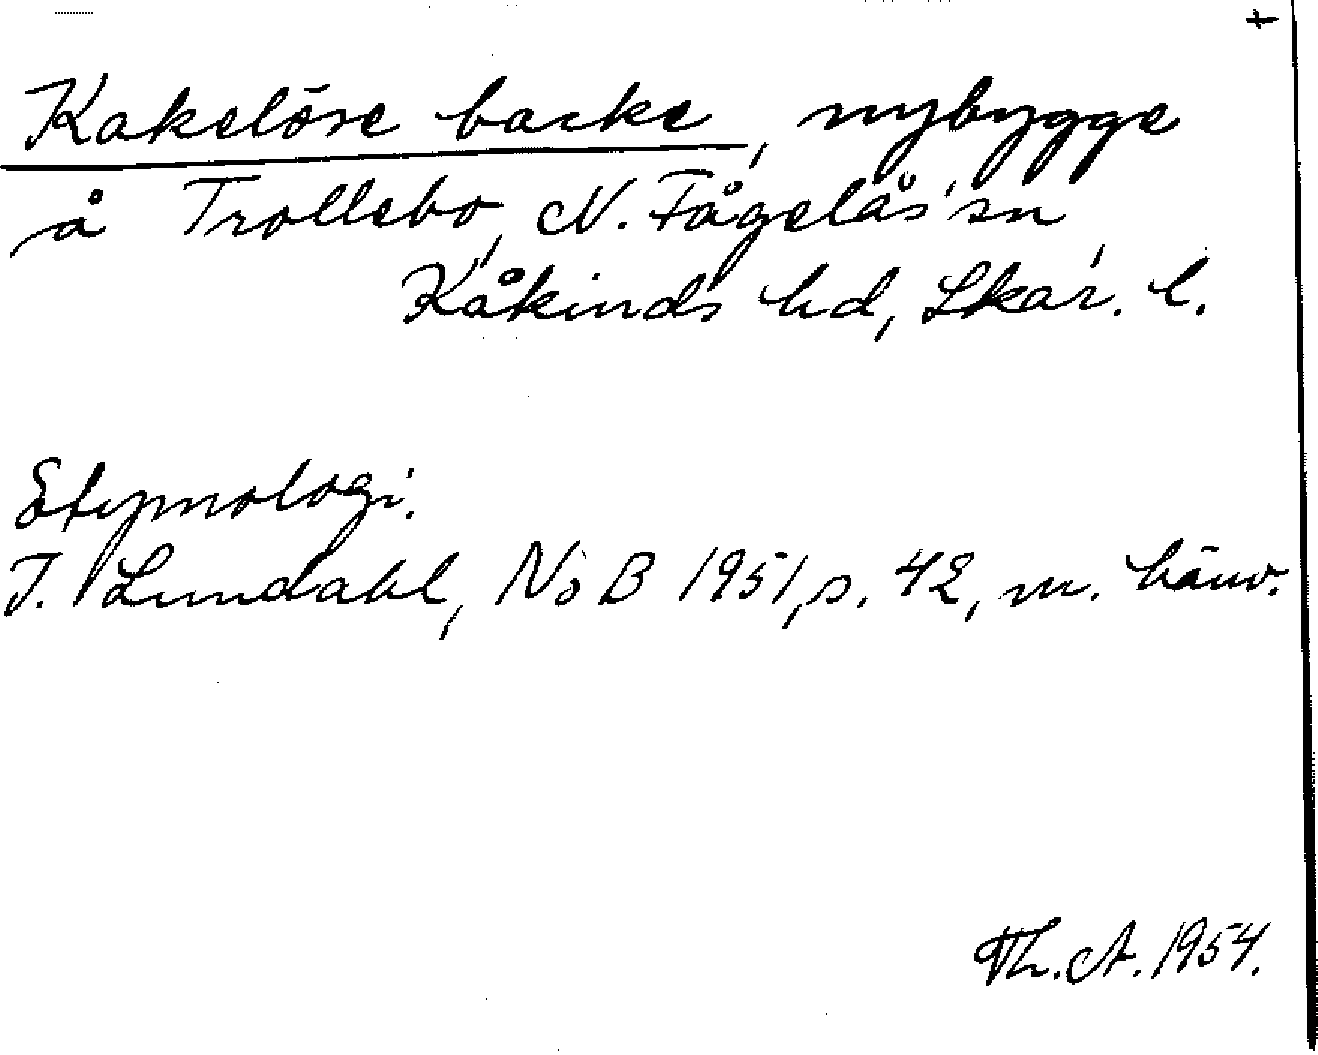 +
Kakelöse backe, nybygge
å Trollebo, N. Fågelås sn,
Kåkinds hd, Skar. l.
Etymologi.
I. Lundahl, NoB 1951, s. 42, m. hänv.
Th. A. 1954.